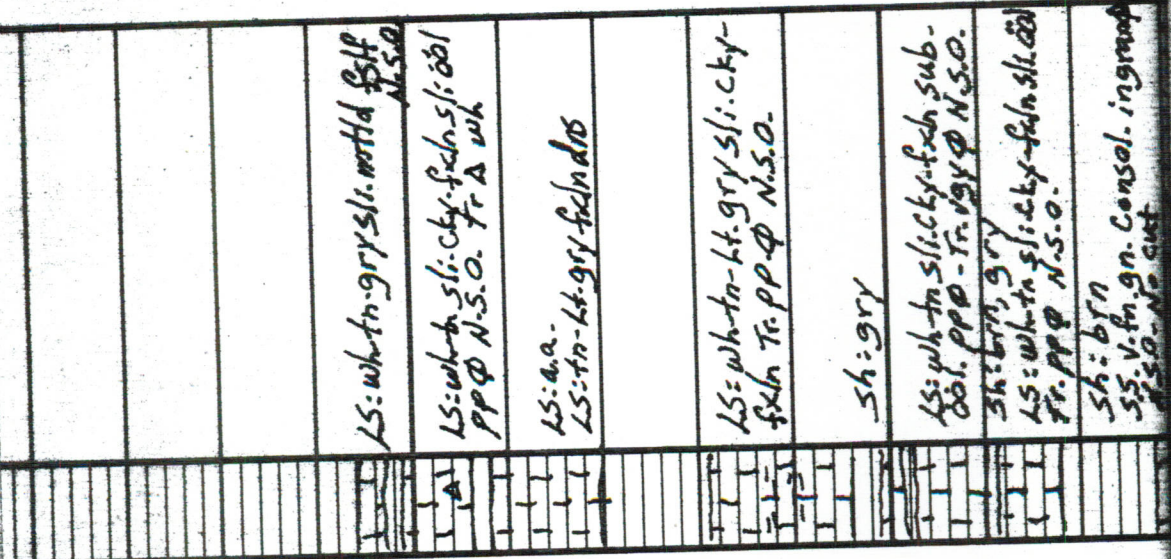 LS: wh-tn-gry sli. mottld fslf
N.S.O
LS: wh-tn sli. cky-fxln sli. ööl
PPØ N.S.O. Tr. Δ wh
LS: a.a.
LS: tn-Lt. gry fxln dns
LS: wh-tn-Lt. gry sli. cky-
fxln Tr. PP-Ø N.S.O.
Sh: gry
LS: wh-tn sli. cky-fxln sub-
ööl. PPØ-Tr. vgyØ N.S.O.
Sh: brn, gry
LS: wh-tn sli. cky-fxln sli. ööl
Tr. PPØ N.S.O.
Sh: brn
SS. V. fn. gn. Consol. ingrnØ
N.S.O.-No cut